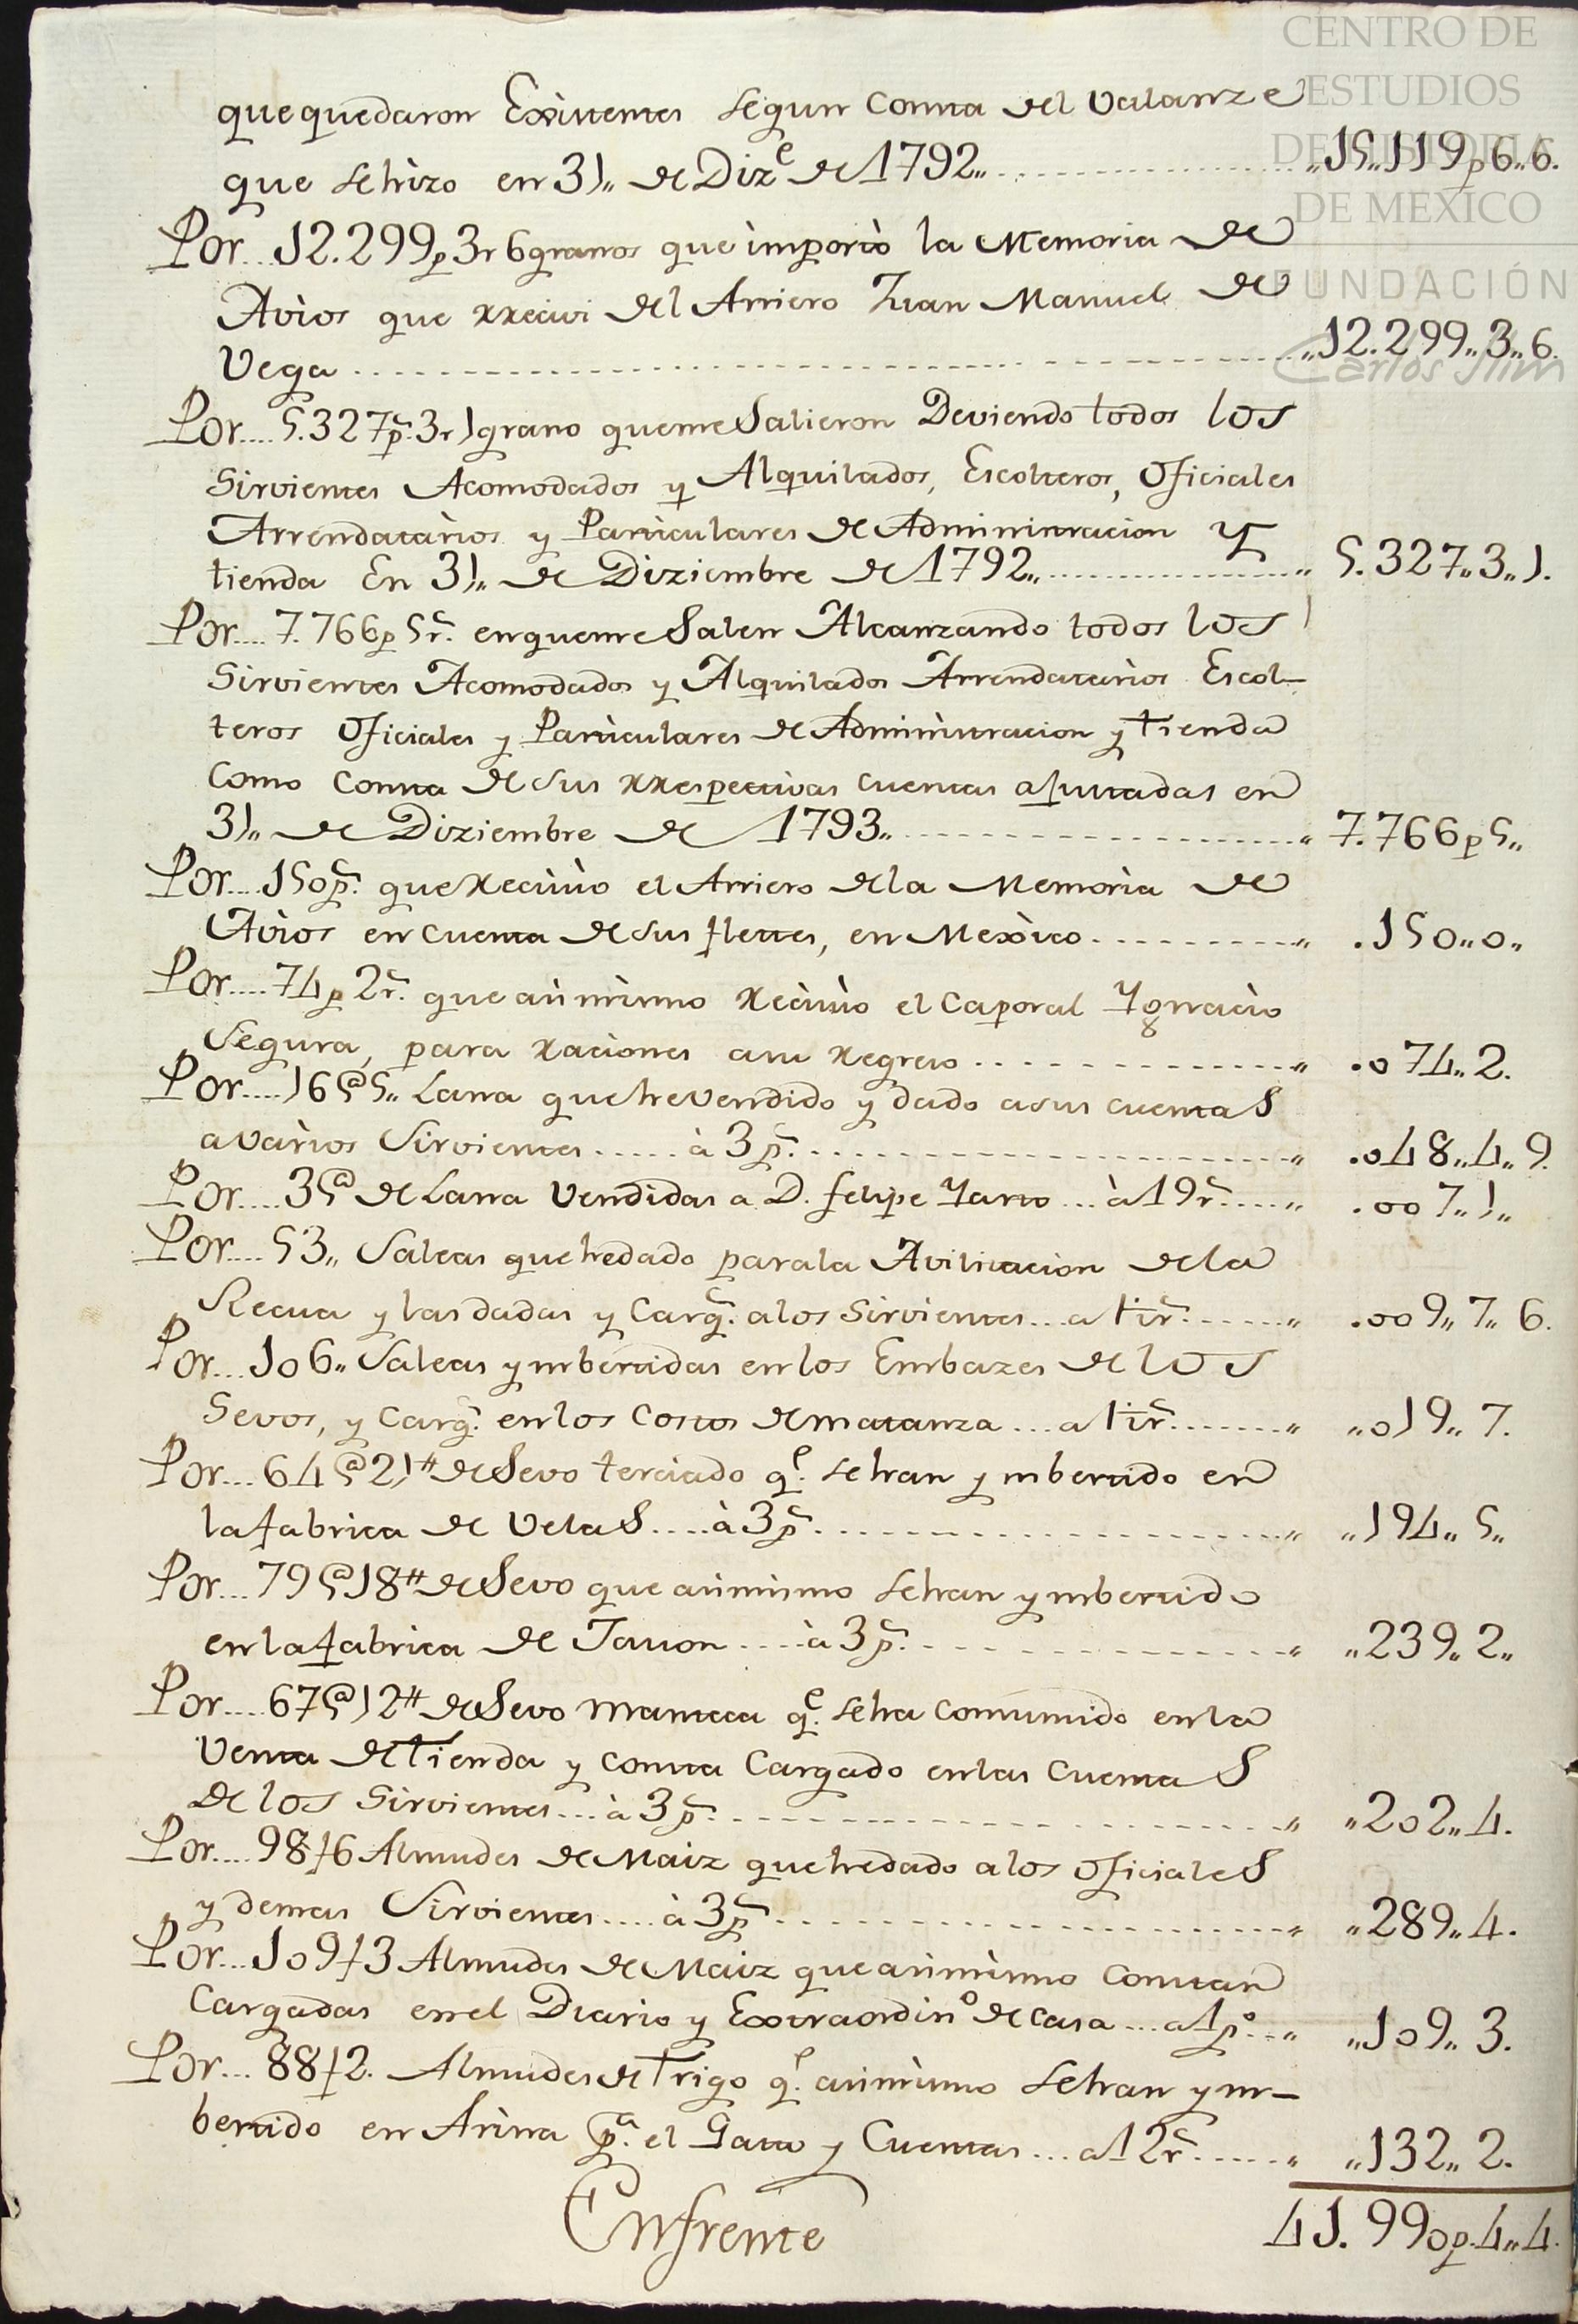 CENTRO DE
ESTUDIOS
DE HISTORIA
DE MEXICO
FUNDACIÓN
Carlos Slim
que quedaron Existentes segun consta del Valanze
que se hizo en 31,, de Diz.e de 1792,, ,,15,,119p6,,6.
Por... 12.299p3r6granos que importò la Memoria de
Avios que rrecivi del Arriero Juan Manuel de
Vega ,,12.299,,3,,6.
Por.... 5.327ps.3r1grano que me Salieron Deviendo todos los
Sirvientes Acomodados y Alquilados, Escolteros, Oficiales
Arrendatarios y Particulares de Administracion y
tienda En 31,, de Diziembre de 1792,, ,, 5.327,,3,,1.
Por.... 7.766p5rs. en que me Salen Alcanzando todos los
Sirvientes Acomodados y Alquilados Arrendatarios Escol-
teros Oficiales y Particulares de Administracion y tienda
Como Consta de sus rrespectivas cuentas ajustadas en
31,, de Diziembre de 1793,, ,, 7.766p5,,
Por.... 150ps. que Recivio el Arriero de la Memoria de
Avios en cuenta de sus flettes, en Mexico ,, .150,,0,,
Por.... 74p2rs. que asi mismo Recivio el Caporal Ygnacio
Segura, para Raciones a su Regreso ,, .074,,2.
Por.... 16@5,, Lana que he Vendido y dado a sus cuentas
a varios Sirvientes ..... à 3ps. ,, .048,,4,,9.
Por.... 3@ de Lana Vendidas a D. Felipe Yarto ... à 19rs. ,, .007,,1,,
Por.... 53,, Saleas que he dado para la Avilitacion de la
Recua y las dadas y Carg.s a los Sirvientes ... a 1½rs. ,, .009,,7,,6.
Por... 106,, Saleas ymbertidas en los Embazes de los
Sevos, y Carg.s en los Costos de matanza ... a 1½rs. ,, ,,019,,7.
Por... 64@21# de Sevo terciado q.e se han ymbertido en
la fabrica de Velas .... à 3ps. ,, ,,194,,5,,
Por... 79@18# de Sevo que asimismo se han ymbertido
en la fabrica de Javon .... à 3ps. ,, ,,239,,2,,
Por.... 67@12# de Sevo Manteca q.e se ha Consumido en la
Venta de Tienda y consta Cargado en las Cuentas
De los Sirvientes ... à 3ps. ,, ,,202,,4.
Por.... 98f6 Almudes de Maiz que he dado a los Oficiales
y demas Sirvientes .... à 3ps. ,, ,,289,,4.
Por... 109f3 Almudes de Maiz que asimismo Constan
Cargadas en el Diario y Extraordin.o de Casa ... a 1p.o ,, ,,109,,3.
Por... 88f2. Almudes de Trigo q.e asimismo se han ym-
bertido en Arina p.a el Gasto y Cuentas ... a 12rs. ,, ,,132,,2.
Enfrente 41.990p.4,,4.